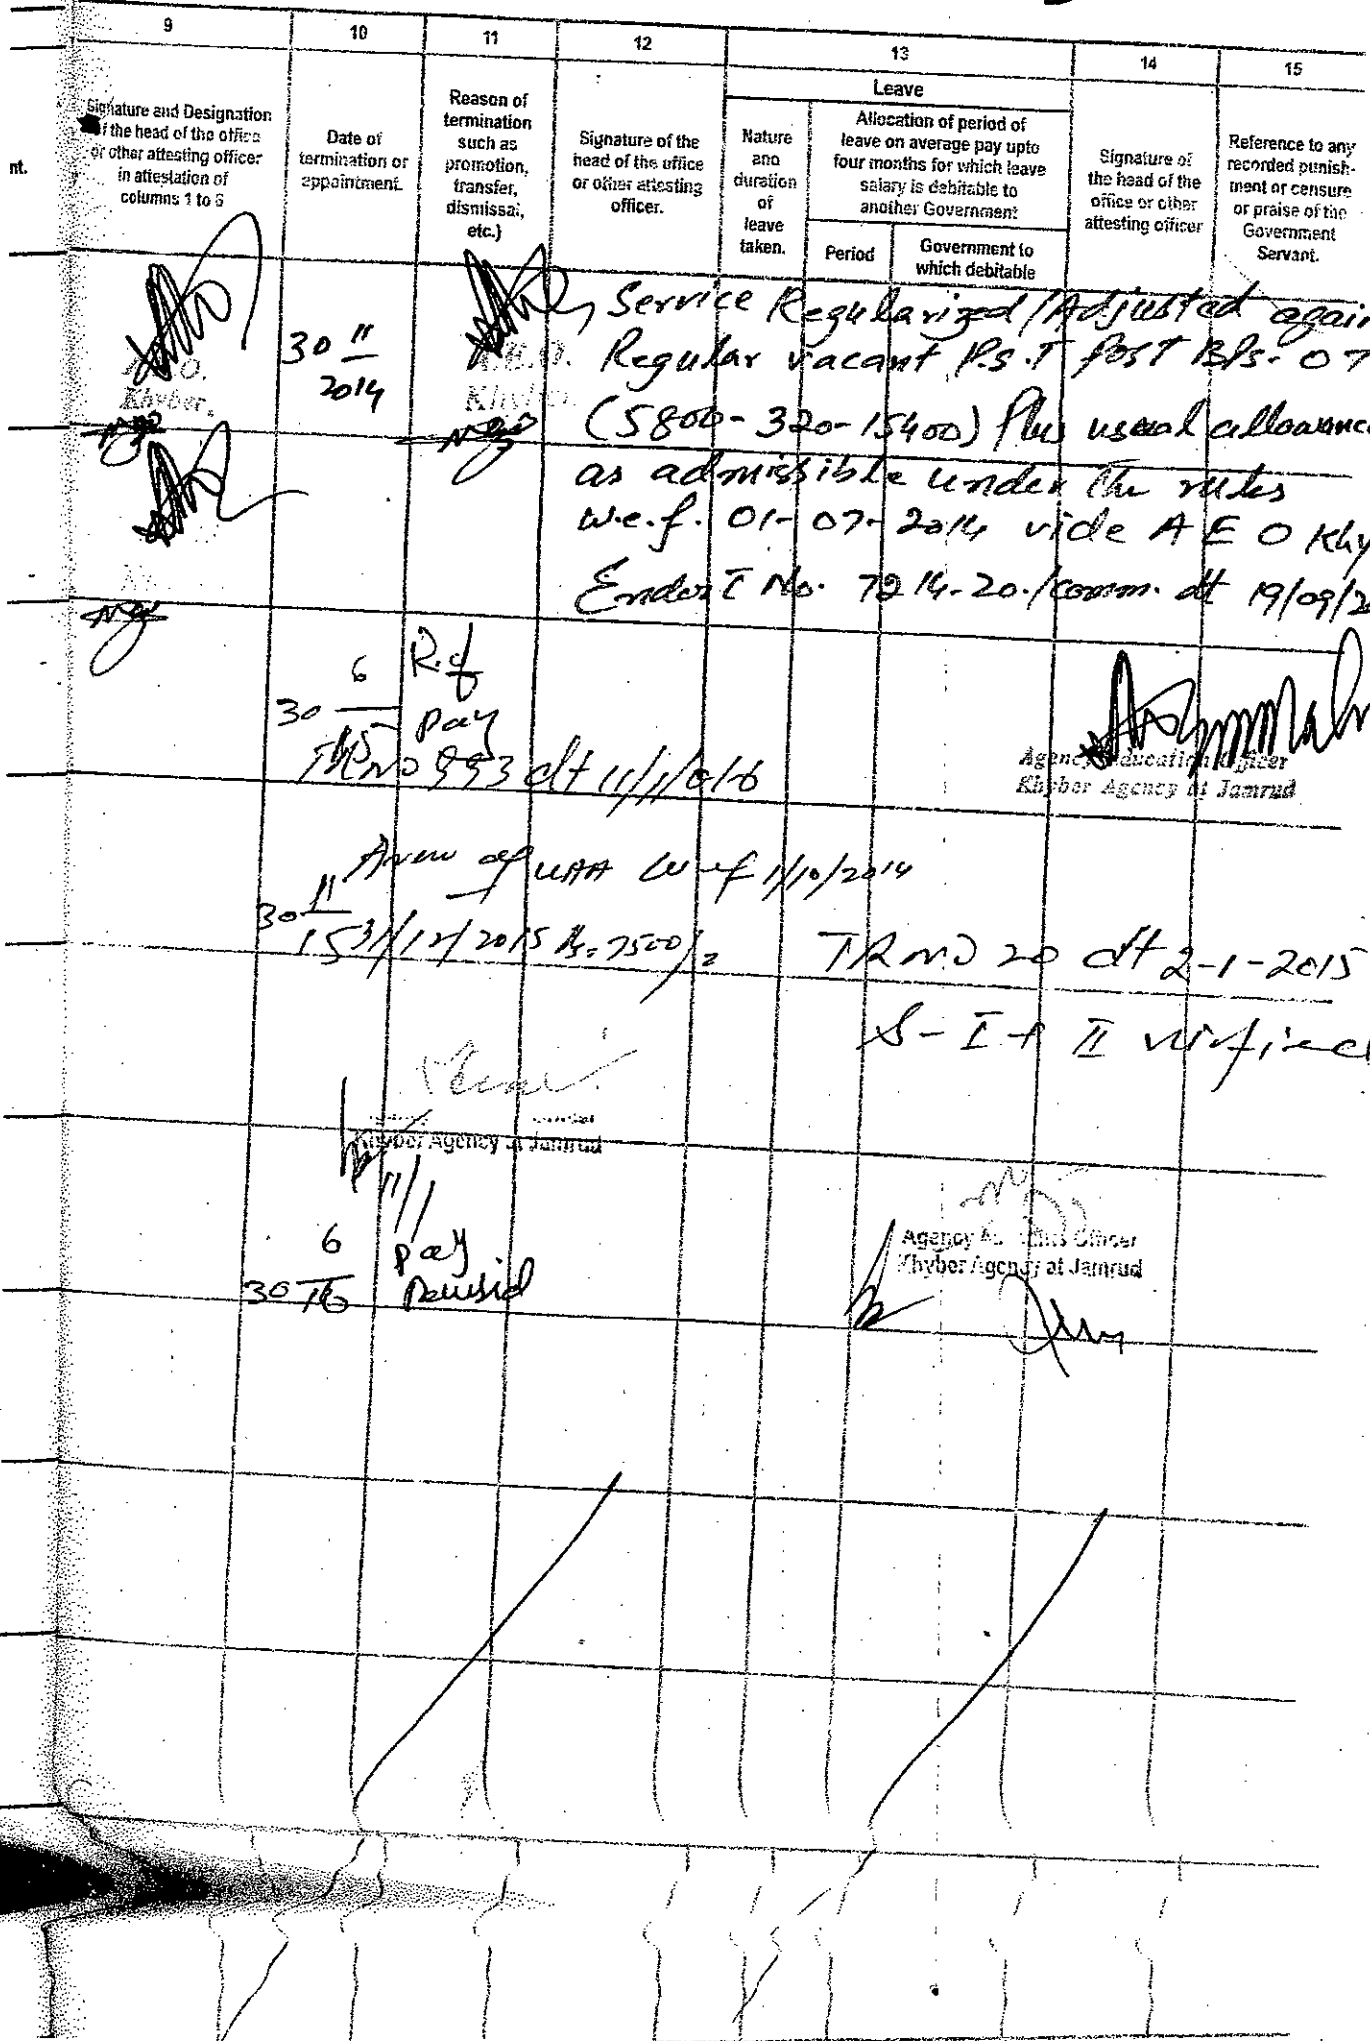 9 10 11 12 13 14 15
nt.
Signature and Designation
of the head of the office
or other attesting officer
in attestation of
columns 1 to 8
Date of
termination or
appointment.
Reason of
termination
such as
promotion,
transfer,
dismissal,
etc.)
Signature of the
head of the office
or other attesting
officer.
Leave
Nature
and
duration
of
leave
taken.
Allocation of period of
leave on average pay upto
four months for which leave
salary is debitable to
another Government
Period
Government to
which debitable
Signature of
the head of the
office or other
attesting officer
Reference to any
recorded punish-
ment or censure
or praise of the
Government
Servant.
Khyber.
30 11
2014
A.E.O.
Khyber.
Service Regularized/Adjusted again
Regular vacant P.S.T post BPS-07
(5800-320-15400) Plus usual allowance
as admissible under the rules
w.e.f. 01-07-2014 vide A E O Khy
Endorst No. 7214-20/comm. dt 19/09/2
30 6
15
pay
TR NO 993 dt 11/1/016
Agency Education Officer
Khyber Agency at Jamrud
of UAA w-ef 1/10/2014
30 11
15
31/12/2015 Rs=7500/=
TR NO 20 dt 2-1-2015
S-I+II
Khyber Agency at Jamrud
11/1
Agency Accounts Officer
Khyber Agency at Jamrud
30 6
16
pay